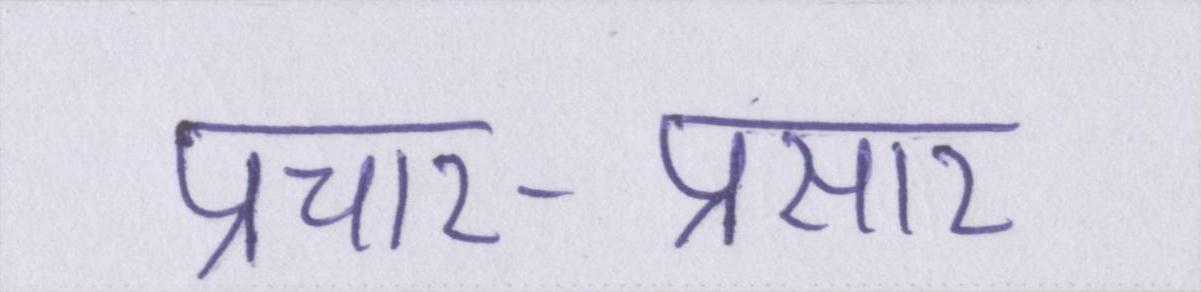 प्रचार- प्रसार